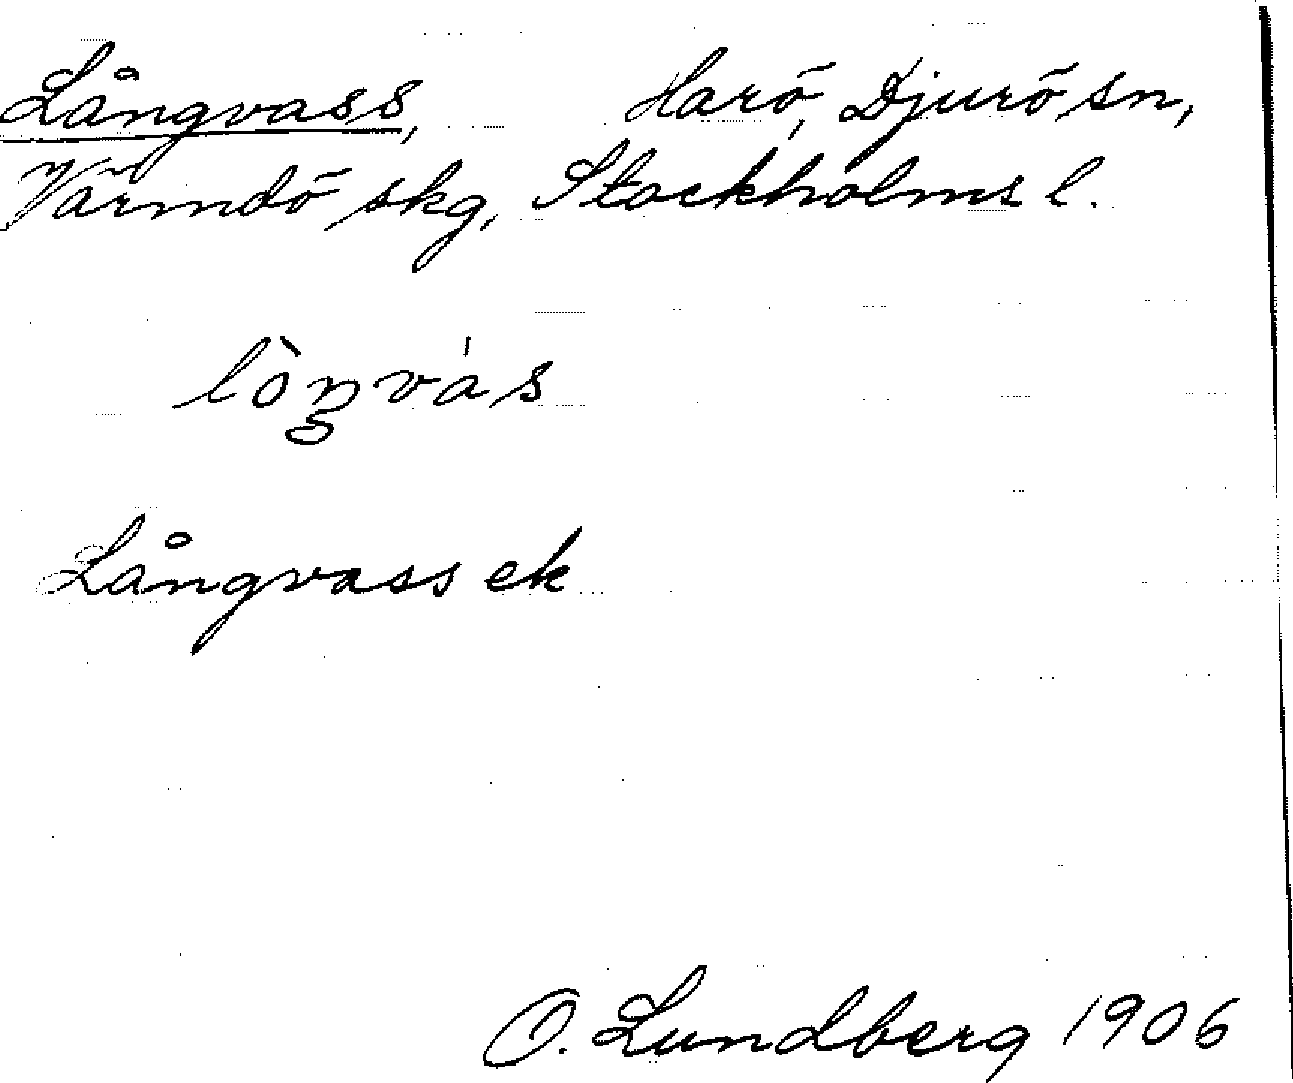 Långvass, Harö, Djurö sn,
Värmdö skg, Stockholms l.
lòŋvás
Långvass ek
O. Lundberg 1906